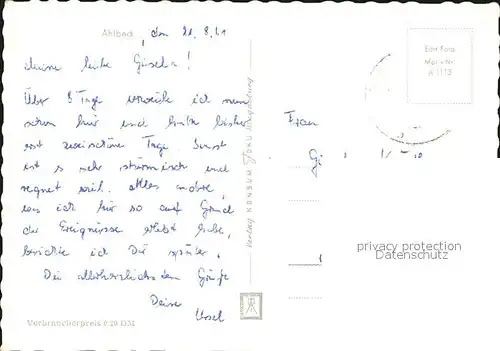 Ahlbeck, den 21.8.61
Meine liebe Gisela!
Über 8 Tage weile ich nun
schon hier und hatte bisher
erst zwei schöne Tage. Sonst
ist es sehr stürmisch und
regnet viel. Alles andere,
was ich hier so auf Grund
der Ereignisse erlebt habe,
berichte ich Dir später.
Dir allerherzlichste Grüße
Deine
Ursel
Verbraucherpreis 0,20 DM
Verlag KONSUM FOKU Magdeburg
Echt Foto
A 1113
Frau
Gi
privacy protection
Datenschutz